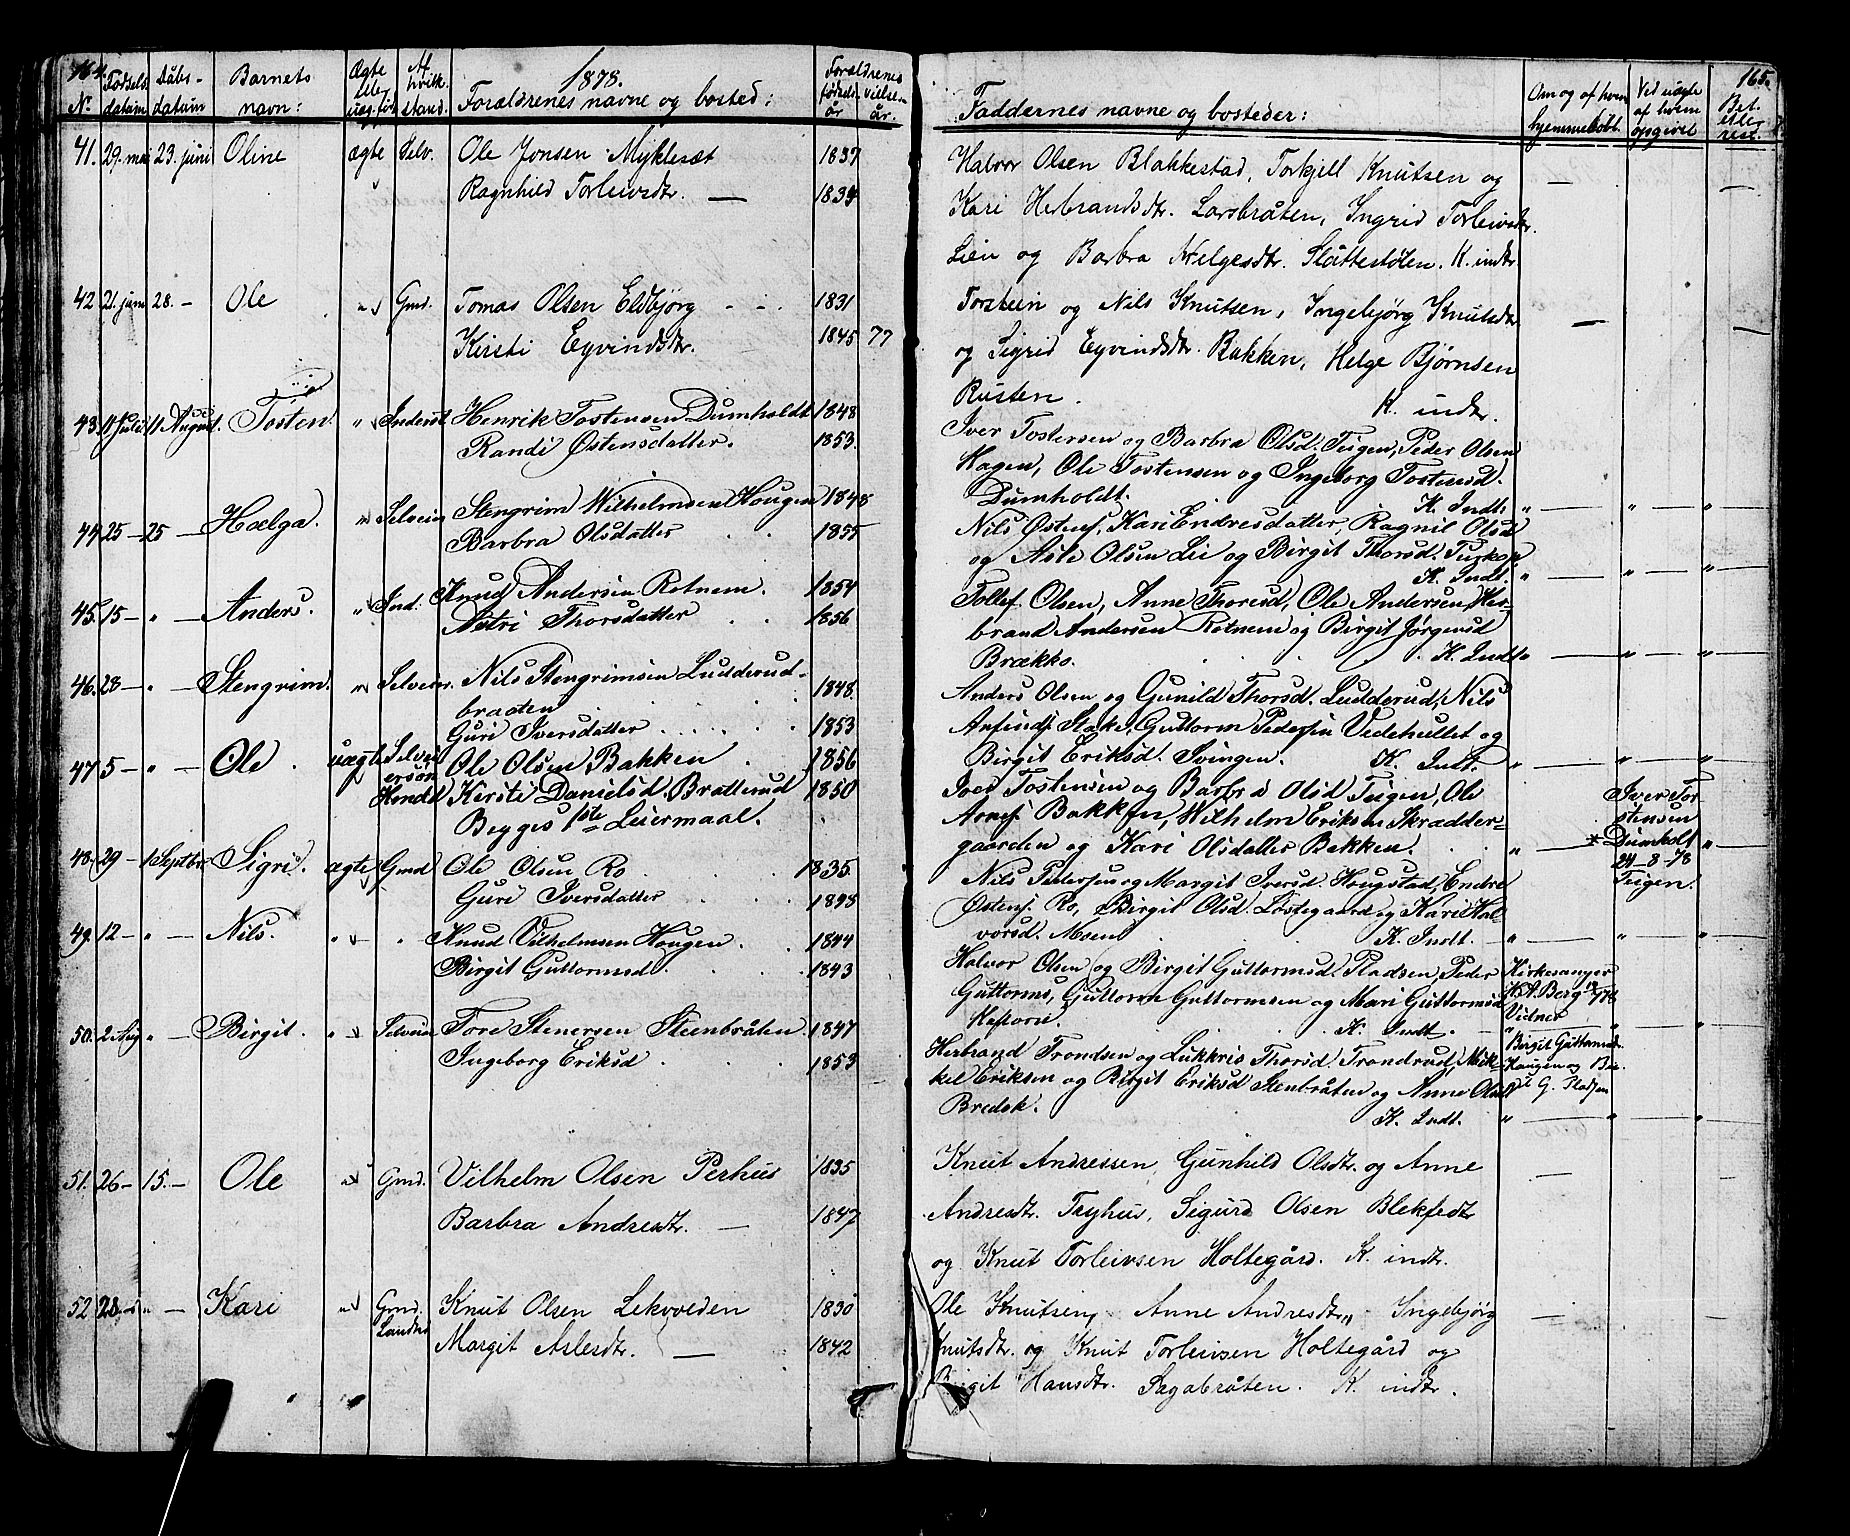 164.
1878.
165.
No. Fødsels datum Dåbs- datum Barnets navn: Ægte eller uæg. fød. Af hvilk. stand. Forældrenes navne og bosted: Forældrenes fødsels- år Vielses- år.
Faddernes navne og bosteder: Om og af hvem hjemmedøbt. Ved uægte af hvem opgivet Bet. eller rest.
41. 29. mai 23. juni Oline ægte Selv. Ole Jonsen Myklesæt 1837
Ragnhild Torleivsdtr. — 1839
Halvor Olsen Blakkestad, Torkjell Knutsen og
Kari Herbrandsdtr. Larsbråten, Ingrid Torleivsdtr.
Lien og Barbra Helgesdtr. Slåttestølen. K. indtr
42 21. juni 28. — Ole " Gmd. Tomas Olsen Eldbjørg 1831
Kirsti Eyvindsdtr. 1845 77
Torstein og Nils Knutsen, Ingebjørg Knutsdtr
og Sigrid Eyvindsdtr. Bakken, Helge Bjørnsen
Rusten. K. indtr.
43. 11 Juli 11 August. Tosten " Inderst Henrik Tostensen Dumholdt 1848
Randi Østensdatter. 1853.
Iver Tostensen og Barbra Olsd. Teigen, Peder Olsen
Hagen, Ole Tostensen og Ingeborg Tostensd.
Dumholdt. K. Indt. " — " — "
44 25 — 25 — Hælga. " Selveier Stengrim Wilhelmsen Hougen 1848
Barbra Olsdatter 1855
Nils Østens. Kari Endresdatter, Ragnil Olsd
og Asle Olsen Lei og Birgit Thorsd.
K. Indt. " — " — "
45. 15 — " — Anders. " Ind. Knud Andersen Rotnem. 1854
Astri Thorsdatter 1856
Tollef Olsen, Anne Thoresd, Ole Andersen, Her-
brand Andersen Rotnem og Birgit Jørgensd
Brækko. K. Indt. " — " — "
46. 28 — " — Stengrim. " Selveier. Nils Stengrimsen Ludderud-
braaten 1848.
Guri Iversdatter 1853
Anders Olsen og Gunild Thorsd. Ludderud, Nils
Anfinds. Stake, Guttorm Pedersen Vedehullet og
Birgit Eriksd. Svingen. K. Indt. " — " — "
47 5 — " — Ole. uægte Selvei- ersøn Ole Olsen Bakken 1856
Kirsti Danielsd. Bratterud 1850
Begges 1ste Leiermaal.
Iver Tostensen og Barbra Olsd Teigen, Ole
Arnes. Bakken, Wilhelm Eriksen Skrædder-
gaarden og Kari Olsdatter Bakken. " —
Iver To-
stensen
* Dumholt
24-8-78
Teigen.
48. 29 — 1 Septbr Sigri. ægte Gmd Ole Olsen Ro 1835
Guri Iversdatter
Nils Peders. og Margit Iversd. Hougstad, Endre
Østens. Ro, Birgit Olsd. Løstegaard og Kari Hal-
vorsd. Moen K. Indt. — " — " — "
49. 12 — " — Nils. " " Knud Vilhelmsen Hougen. 1844
Birgit Guttormsd. 1843
Halvor Olsen og Birgit Guttormsd. Pladsen, Peder
Guttorms, Guttorm Guttormsen og Mari Guttormsd
K. Indt.
Kirkesanger
Berg
Vidner
Birgit Guttormsd.
Haugen og Bir-
git G. Pladsen
50. 2 Aug " — Birgit. " Selveier Tore Stenersen Steenbråten 1847
Ingeborg Eriksd 1853
Herbrand Trondsen og Lukkris Thorsd Trondrud, Mik-
kel Eriksen og Birgit Eriksd Stenbråten og Anne Olsd
K. Indt. " — " — "
51. 26 — 15. — Ole " Gmd. Vilhelm Olsen Perhus 1835
Barbra Andresdtr. — 1847
Knut Andressen, Gunhild Olsdtr. og Anne
Andresdtr. Tryhus, Sigurd Olsen Blekfedtr
og Knut Torleivsen Holtegård. K. indtr.
52 28 — " — Kari " Gmd. Knut Olsen Lekvveden 1830
Margit Aslesdtr. — 1842
Ole Knutsen, Anne Andresdtr., Ingebjørg
Knutsdtr. og Knut Torleivsen Holtegård og
Birgit Hansdtr. Sagabråten. K. indtr.